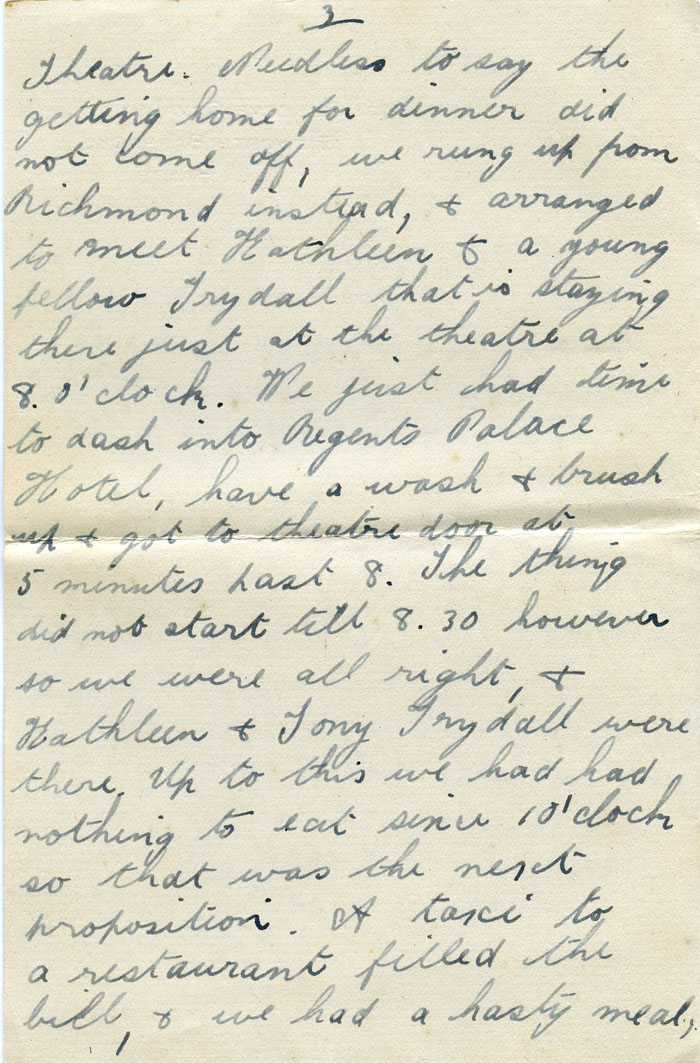 3
Theatre. Needless to say the
getting home for dinner did
not come off, we rung up from
Richmond instead, & arranged
to meet Kathleen & a young
fellow Trydall that is staying
there just at the theatre at
8. O'clock. We just had time
to dash into Regents Palace
Hotel, have a wash & brush
up & got to theatre door at
5 minutes past 8. The thing
did not start till 8.30 however
so we were all right, &
Kathleen & Tony Trydall were
there. Up to this we had had
nothing to eat since 1 O'clock
so that was the next
proposition. A taxi to
a restaurant filled the
bill, & we had a hasty meal,